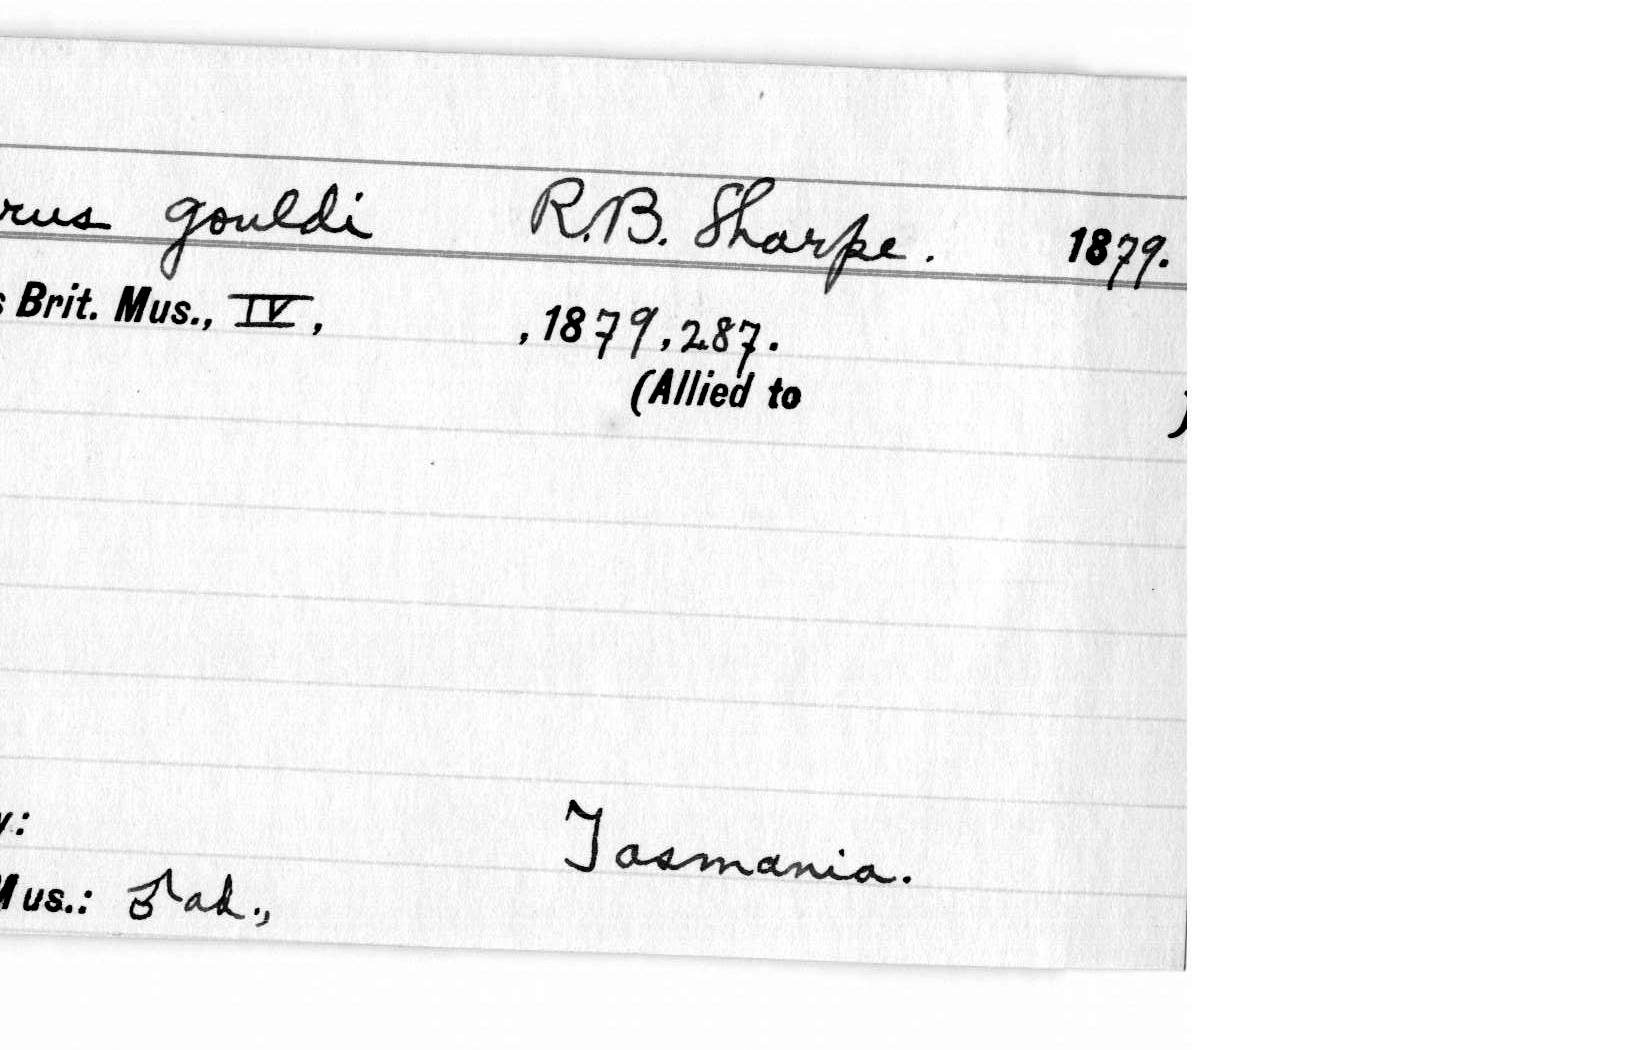 rus gouldi R.B. Sharpe. 1879.
s Brit. Mus., IV, , 1879, 287.
(Allied to )
y: Tasmania.
Mus.: ♂ ad.,